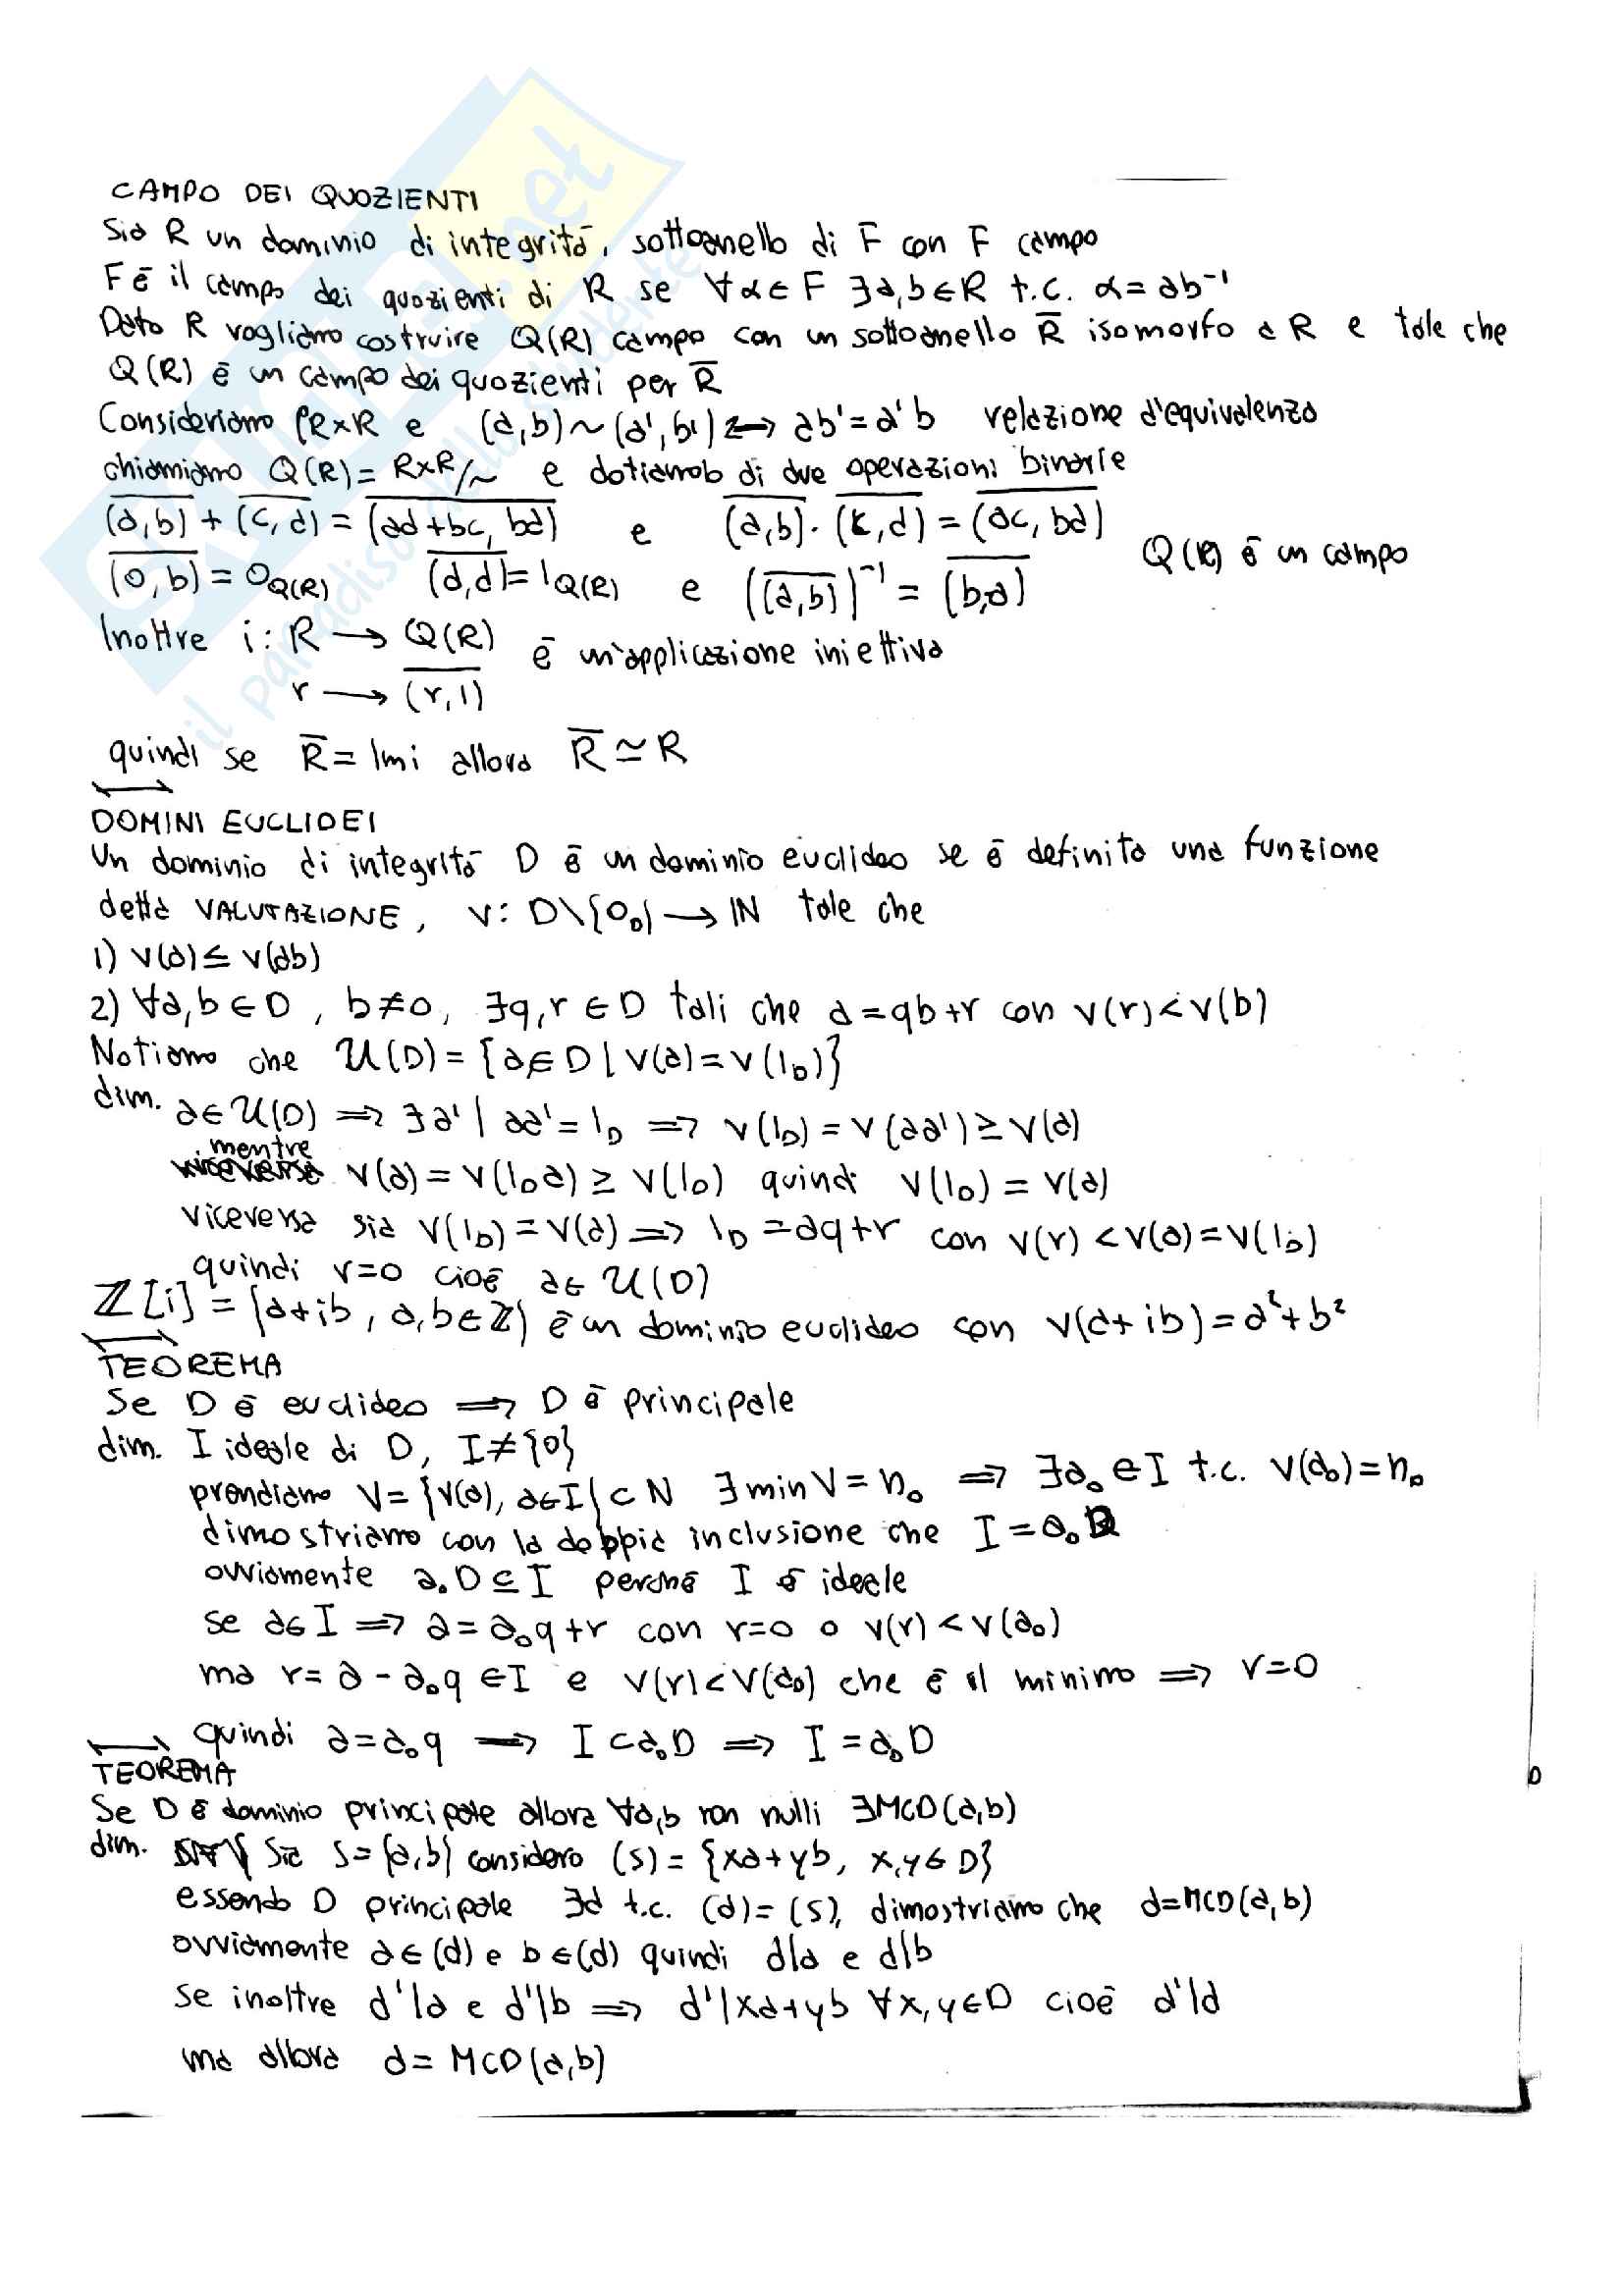 CAMPO DEI QUOZIENTI
Sia R un dominio di integrità, sottoanello di F con F campo
F è il campo dei quozienti di R se ∀α∈F ∃a,b∈R t.c. α=ab⁻¹
Dato R vogliamo costruire Q(R) campo con un sottoanello R̅ isomorfo a R e tale che
Q(R) è un campo dei quozienti per R̅
Consideriamo R×R e (a,b)~(a',b') ⟺ ab'=a'b relazione d'equivalenza
chiamiamo Q(R)=R×R/~ e dotiamolo di due operazioni binarie
\overline{(a,b)} + \overline{(c,d)} = \overline{(ad+bc, bd)} e \overline{(a,b)}·\overline{(c,d)} = \overline{(ac, bd)}
\overline{(0,b)} = 0_{Q(R)} \overline{(d,d)} = 1_{Q(R)} e (\overline{(a,b)})⁻¹ = \overline{(b,a)} Q(R) è un campo
Inoltre i: R ⟶ Q(R) è un'applicazione iniettiva
r ⟶ \overline{(r,1)}
quindi se R̅ = Imi allora R̅ ≃ R
DOMINI EUCLIDEI
Un dominio di integrità D è un dominio euclideo se è definita una funzione
detta VALUTAZIONE, v: D\{0_D} ⟶ ℕ tale che
1) v(a) ≤ v(ab)
2) ∀a,b∈D, b≠0, ∃q,r∈D tali che a=qb+r con v(r)<v(b)
Notiamo che U(D) = {a∈D | v(a)=v(1_D)}
dim. a∈U(D) ⟹ ∃a' | aa'=1_D ⟹ v(1_D)=v(aa')≥v(a)
mentre v(a)=v(1_D a) ≥ v(1_D) quindi v(1_D) = v(a)
viceversa sia v(1_D)=v(a) ⟹ 1_D = aq+r con v(r)<v(a)=v(1_D)
quindi r=0 cioè a∈U(D)
ℤ[i] = {a+ib, a,b∈ℤ} è un dominio euclideo con v(a+ib)=a²+b²
TEOREMA
Se D è euclideo ⟹ D è principale
dim. I ideale di D, I≠{0}
prendiamo V={v(a), a∈I} ⊂ N ∃ min V = n₀ ⟹ ∃a₀∈I t.c. v(a₀)=n₀
dimostriamo con la doppia inclusione che I=a₀D
ovviamente a₀D⊆I perché I è ideale
se a∈I ⟹ a=a₀q+r con r=0 o v(r)<v(a₀)
ma r=a-a₀q∈I e v(r)<v(a₀) che è il minimo ⟹ r=0
quindi a=a₀q ⟹ I⊂a₀D ⟹ I=a₀D
TEOREMA
Se D è dominio principale allora ∀a,b non nulli ∃MCD(a,b)
dim. Sia S={a,b} considero (S)={xa+yb, x,y∈D}
essendo D principale ∃d t.c. (d)=(S), dimostriamo che d=MCD(a,b)
ovviamente a∈(d) e b∈(d) quindi d|a e d|b
se inoltre d'|a e d'|b ⟹ d'|xa+yb ∀x,y∈D cioè d'|d
ma allora d=MCD(a,b)
il paradiso dello studente